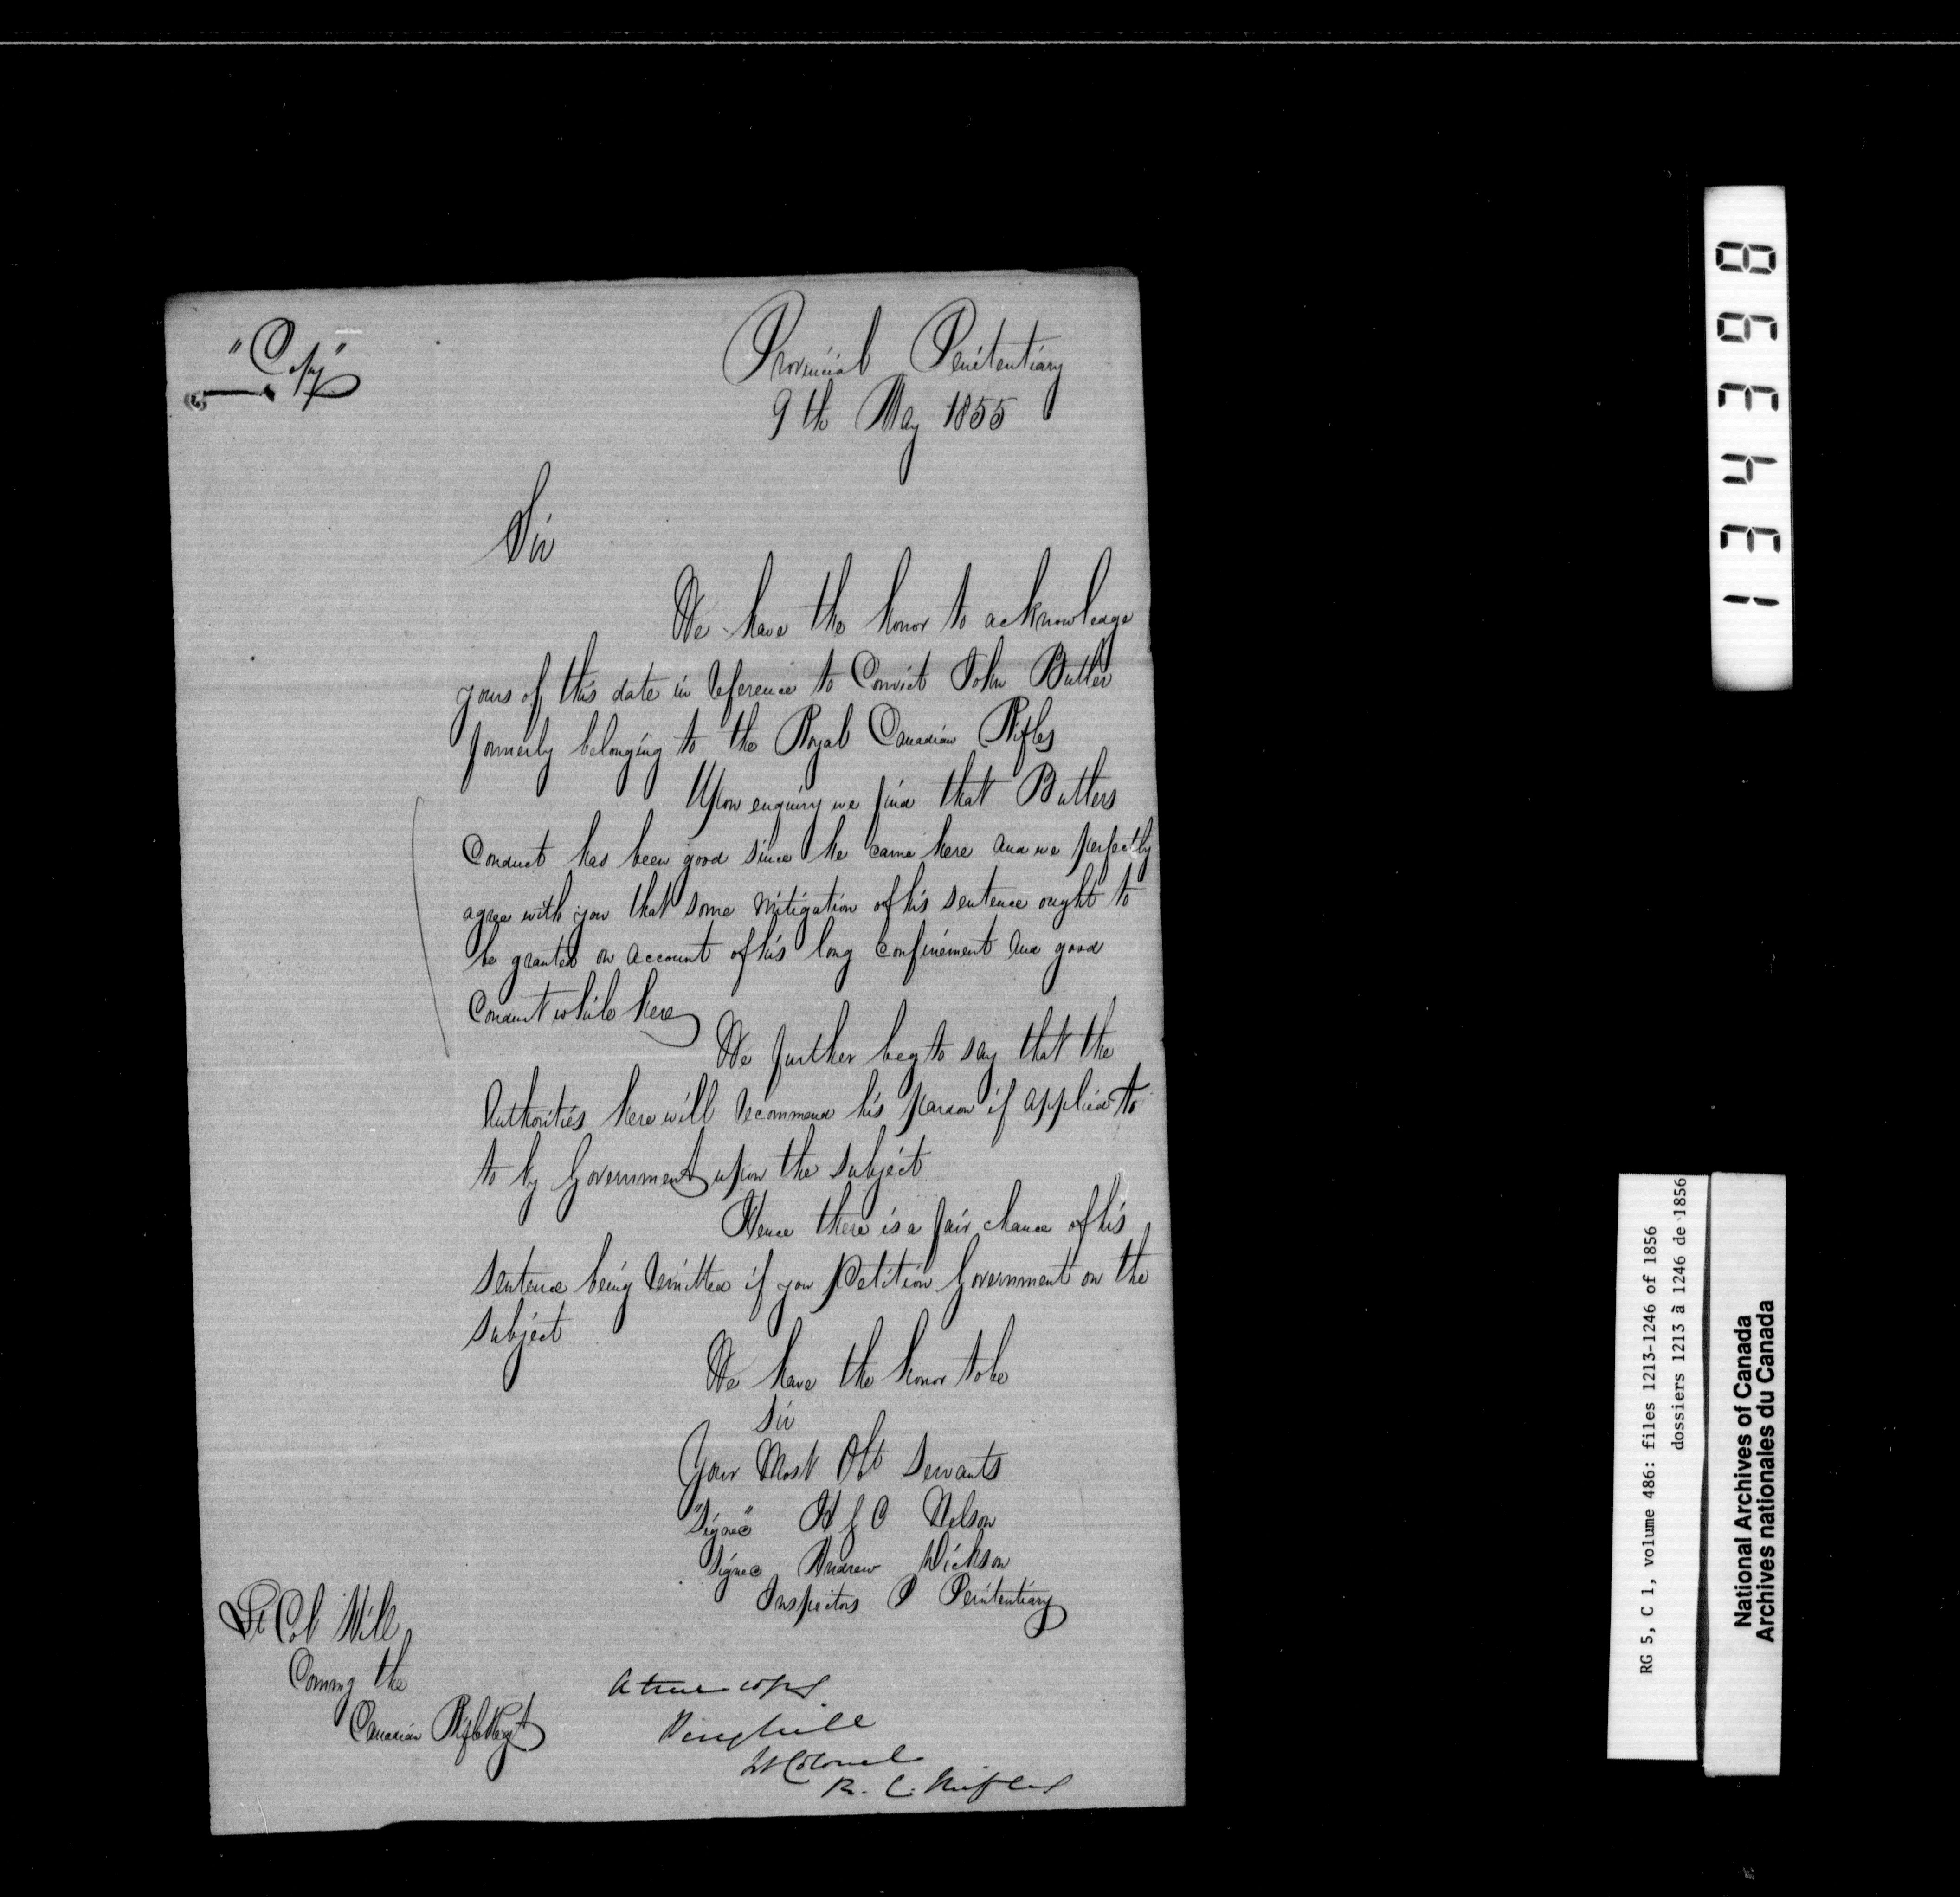 "Copy"
Provincial Penitentiary
9th May 1855
Sir
We have the honor to acknowledge
yours of this date in reference to Convict John Butler
formerly belonging to the Royal Canadian Rifles
Upon enquiry we find that Butlers
Conduct has been good since he came here and we perfectly
agree with you that some mitigation of his sentence ought to
be granted on account of his long confinement and good
Conduct while here
We further beg to say that the
Authorities here will recommend his pardon if applied to
to by Government upon the subject
Hence there is a fair chance of his
Sentence being remitted if you Petition Government on the
subject
We have the honor to be
Sir
Your Most Obt Servants
"Signed" Nelson
Signed Andrew Dickson
Inspectors P Penitentiary
Lt Col Hill
Commg the
Canadian Rifle Regt
A true copy
hill
Lt Colonel
R. C. Rifles
134398
RG 5, C 1, volume 486: files 1213-1246 of 1856
dossiers 1213 à 1246 de 1856
National Archives of Canada
Archives nationales du Canada